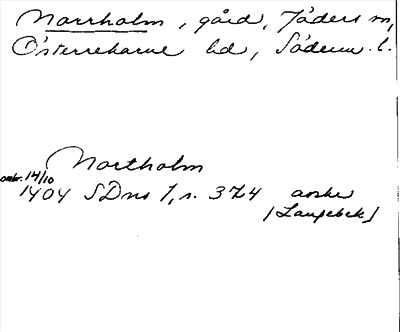 Norrholm, gård, Jäders sn,
Österrekarne hd, Söderm. l.
Northolm
omkr. 14/10
1404 SDns 1, s. 374 avskr
(Langebek)